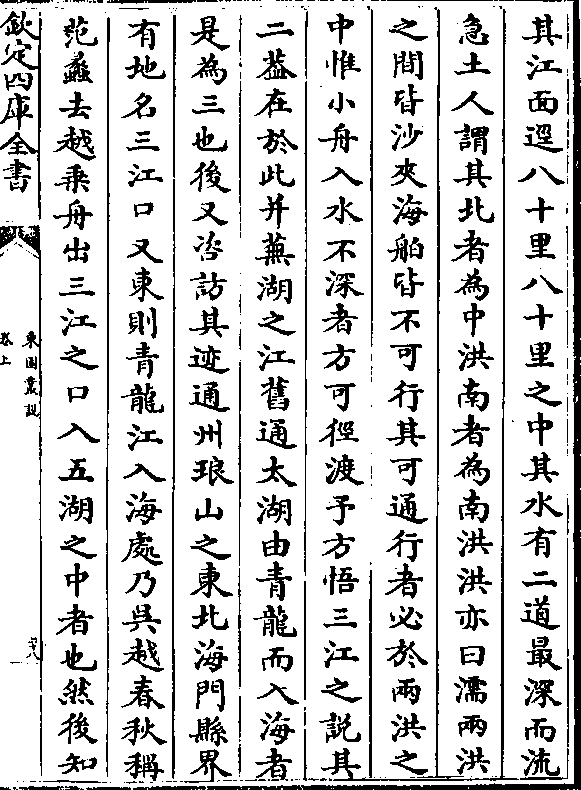 其江面逕八十里八十里之中其水有二道最深而流
急土人謂其北者為中洪南者為南洪洪亦曰濡兩洪
之間皆沙夾海舶皆不可行其可通行者必於兩洪之
中惟小舟入水不深者方可徑渡予方悟三江之說其
二葢在於此并蕪湖之江舊通太湖由青龍而入海者
是為三也後又咨訪其迹通州琅山之東北海門縣界
有地名三江口又東則青龍江入海處乃吳越春秋稱
范蠡去越乗舟出三江之口入五湖之中者也然後知
欽定四庫全書
東園叢說
卷上